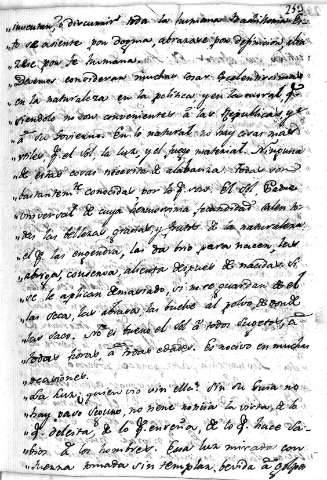 252
"inventan, ò discurren toda la humana
"se asiente por dogma, abrazase por definicion,
"por fe humana.
"Devemos considerar muchas cosas
"en la naturaleza en la politica, y en la moral, q.e
"siendolo no son convenientes à las Republicas, y
"à su Govierno. En lo natural no hay cosas mas
"utiles q.e el Sol, la luz, y el fuego material. Ninguna
"de estas cosas necesita de alabanza. Todas son
"bastantem.te conocidas por lo q.e son. El Sol Padre
"universal, de cuya fecundidad
"las bellezas, gracias, y frutos de la naturaleza
"el q.e las engendra, las dà brio para nacer, las
"abriga, conserva, alienta despues de nacidas. Si
"se le aplican demasiado, si no se guardan de el
"las seca, las abrasa, las buelve al polvo, de donde
"las saco. No es bueno el Sol à todos sugetos, à
"todas horas, à todas edades. Es nocivo en muchas
"ocasiones.
"La luz, quien vio sin ella? Sin su Guia no
"hay paso seguro, no tiene noticia la vista, de lo
"q.e deleita, de lo q.e enseña, de lo q.e hace sa-
"bios à los hombres. Esta luz mirada con
"tomada sin templar, bevida à golpe